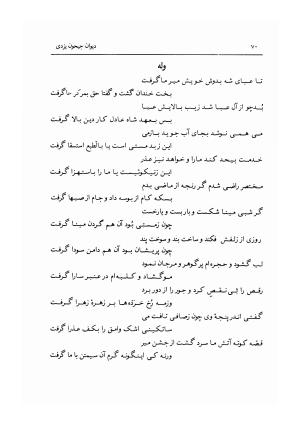 ۷۰
دیوان جیحون یزدی
وله
تا عبای شه بدوش خویش میر ما گرفت
بخت خندان گشت و گفتا حق بمرکز جا گرفت
بُدچو از آل عبا شد زیب بالایش عبا
بس بمهد شاه عادل کار دین بالا گرفت
می همی ننوشد بجای آب جوید بازمی
این زبد مستی است یا بالطبع استسقا گرفت
خدمت بیحد کند ما را و خواهد نیز عذر
این زنیکوئیست یا ما را باستهزا گرفت
مختصر راضی شدم گر رنجه از ماضی بدم
بسکه کام از بوسه داد و جام از صهبا گرفت
گر شبی مینا شکست و بار بست و یار خست
چون زمستی بُود آن هم گردن مینا گرفت
روزی از زلفش فکند و ساخت بند و سوخت پند
چون پریشان بود آن هم دامن سودا گرفت
لب گشود و حجره‌ام پر گوهر و مرجان نمود
مو گشاد و کلبه‌ام در عنبر سارا گرفت
رقص را بی نقص کرد و جور را از دور برد
وزمه رُخ خرده‌ها بر زهرهٔ زهرا گرفت
گفتی اندر پنجهٔ وی چون زصافی تافت می
ساتکینی اشک وامق را بکف عذرا گرفت
قصّه کوته آتش ما سرد گشت از جشن میر
ورنه کی اینگونه گرم آن سیمتن با ما گرفت